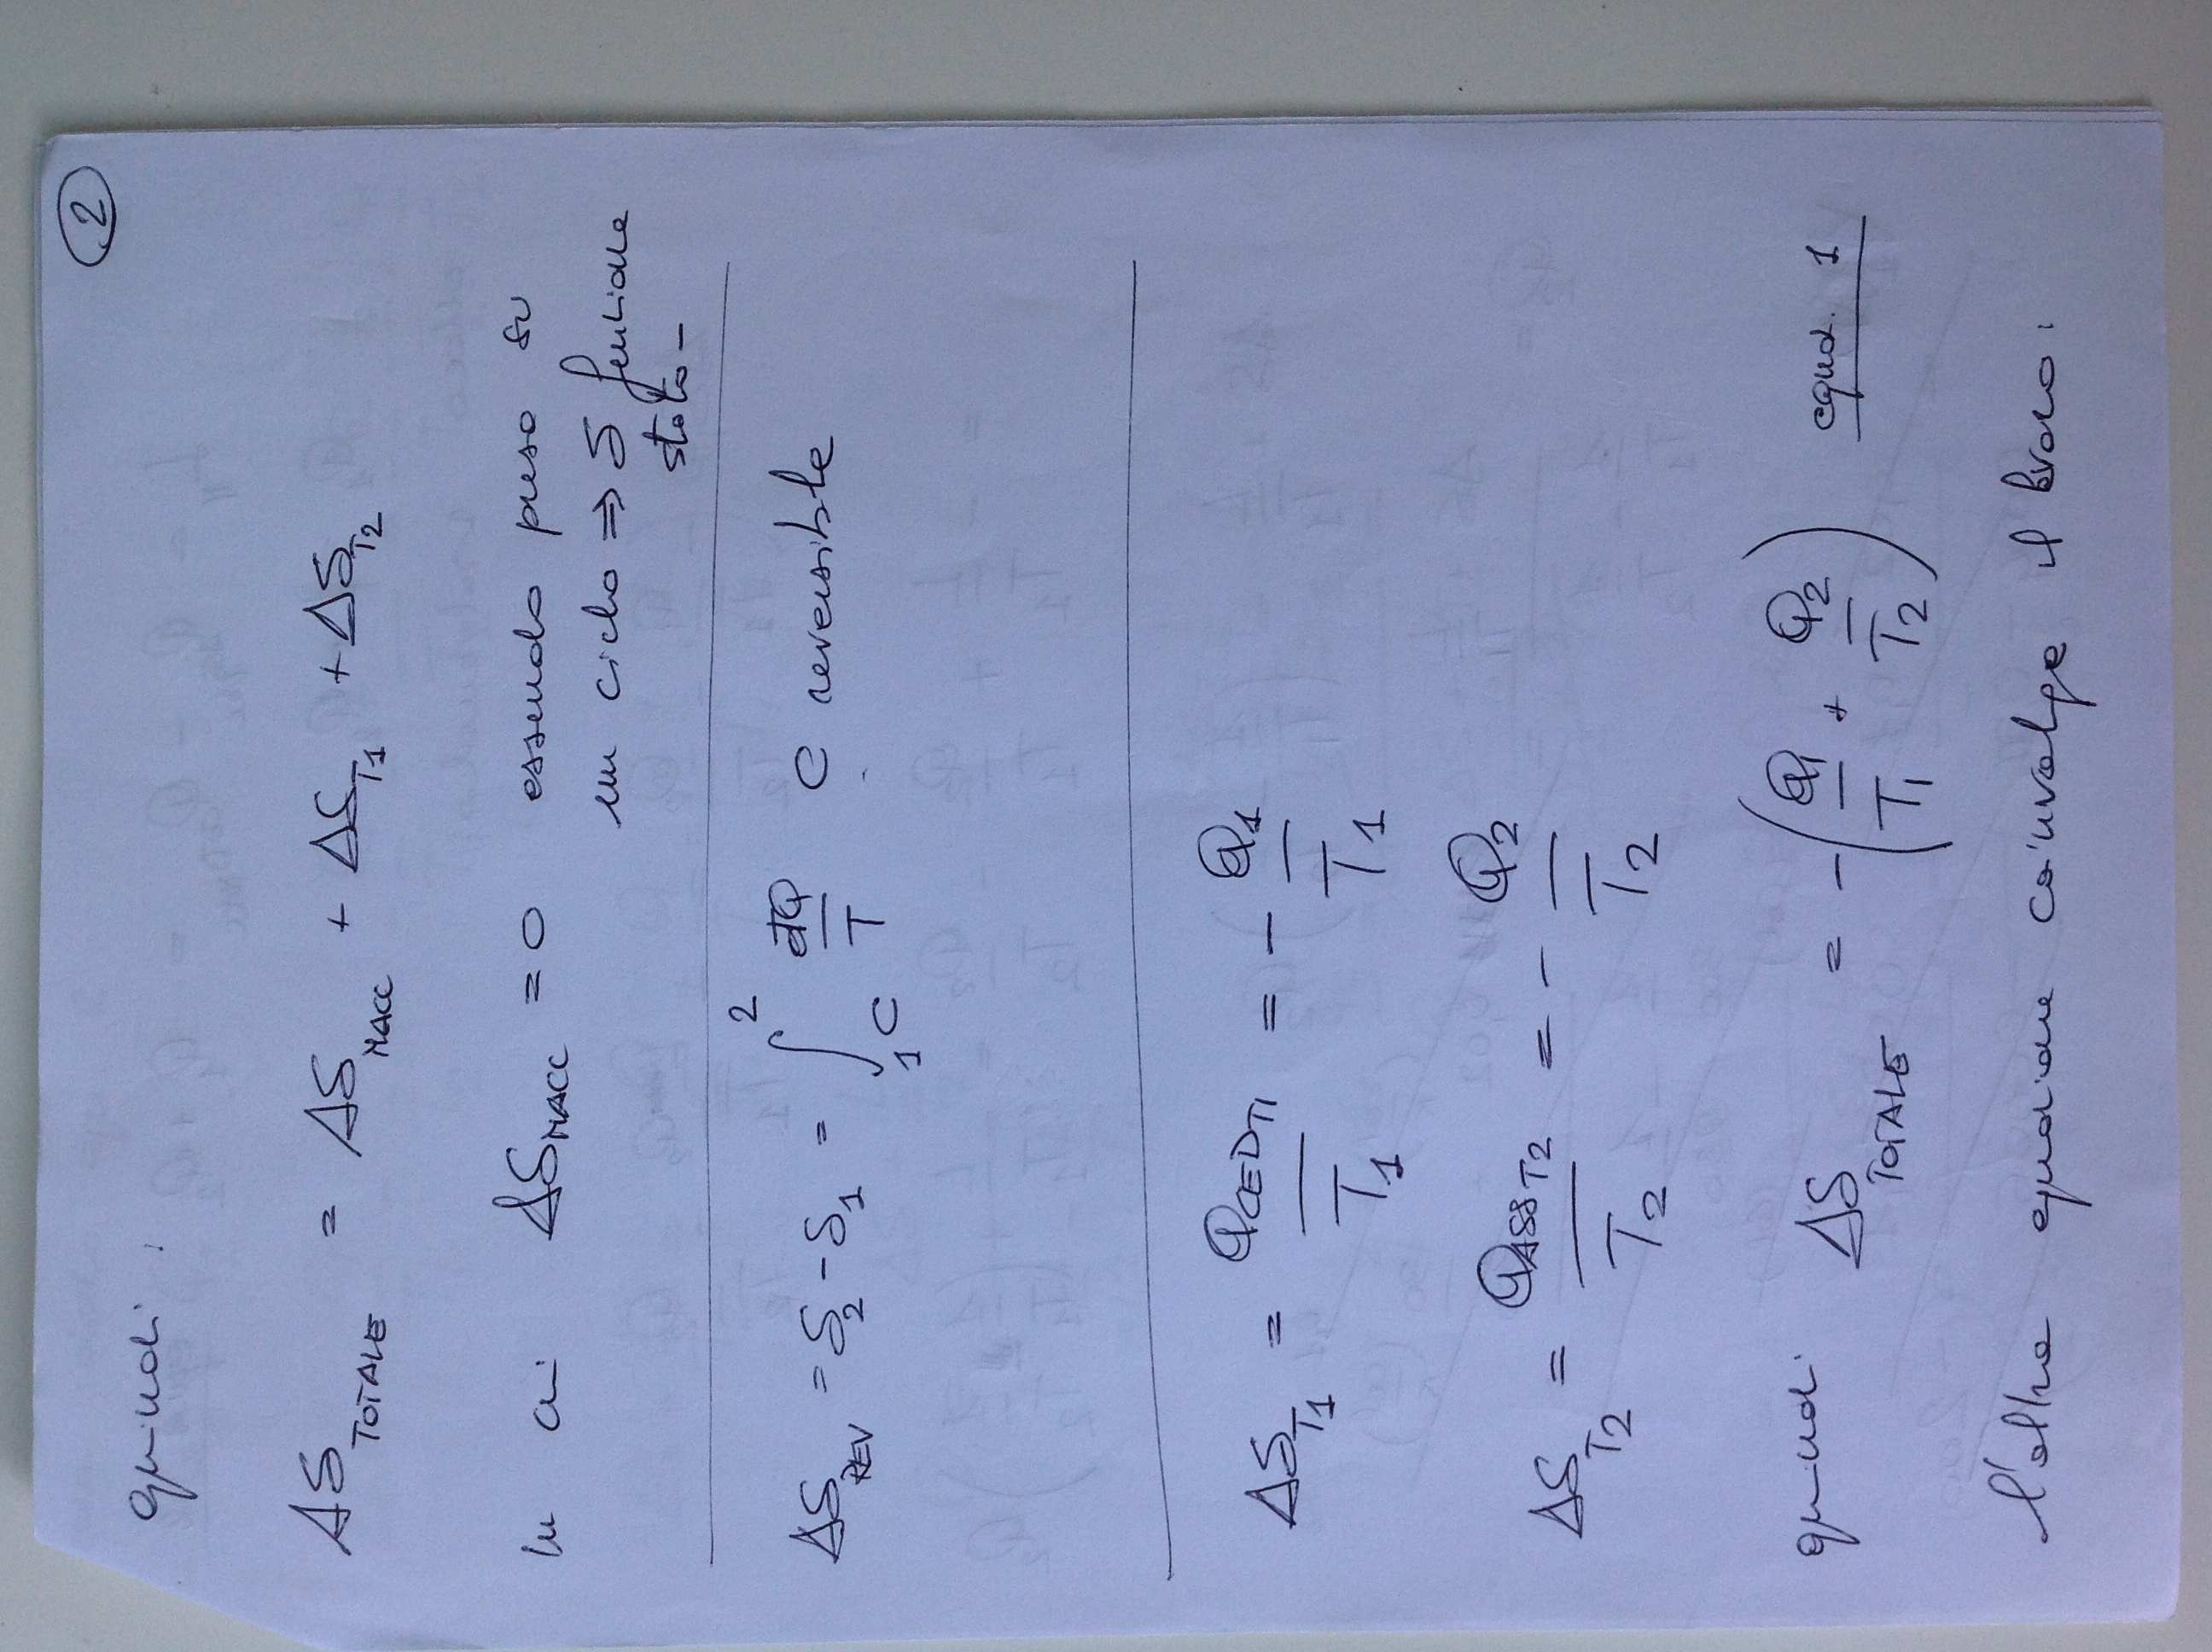 2
quindi :
ΔS_TOTALE = ΔS_MACC + ΔS_T1 + ΔS_T2
in cui ΔS_MACC = 0 essendo preso su
un ciclo ⇒ S funzione
stato –
ΔS_REV = S_2 - S_1 = ∫_1C^2 đQ/T C reversibile
ΔS_T1 = Q_CED T1 / T_1 = - Q_1/T_1
ΔS_T2 = Q_ASS T2 / T_2 = - Q_2/T_2
quindi ΔS_TOTALE = -(Q_1/T_1 + Q_2/T_2) equaz. 1
l'altra equazione coinvolge il lavoro :